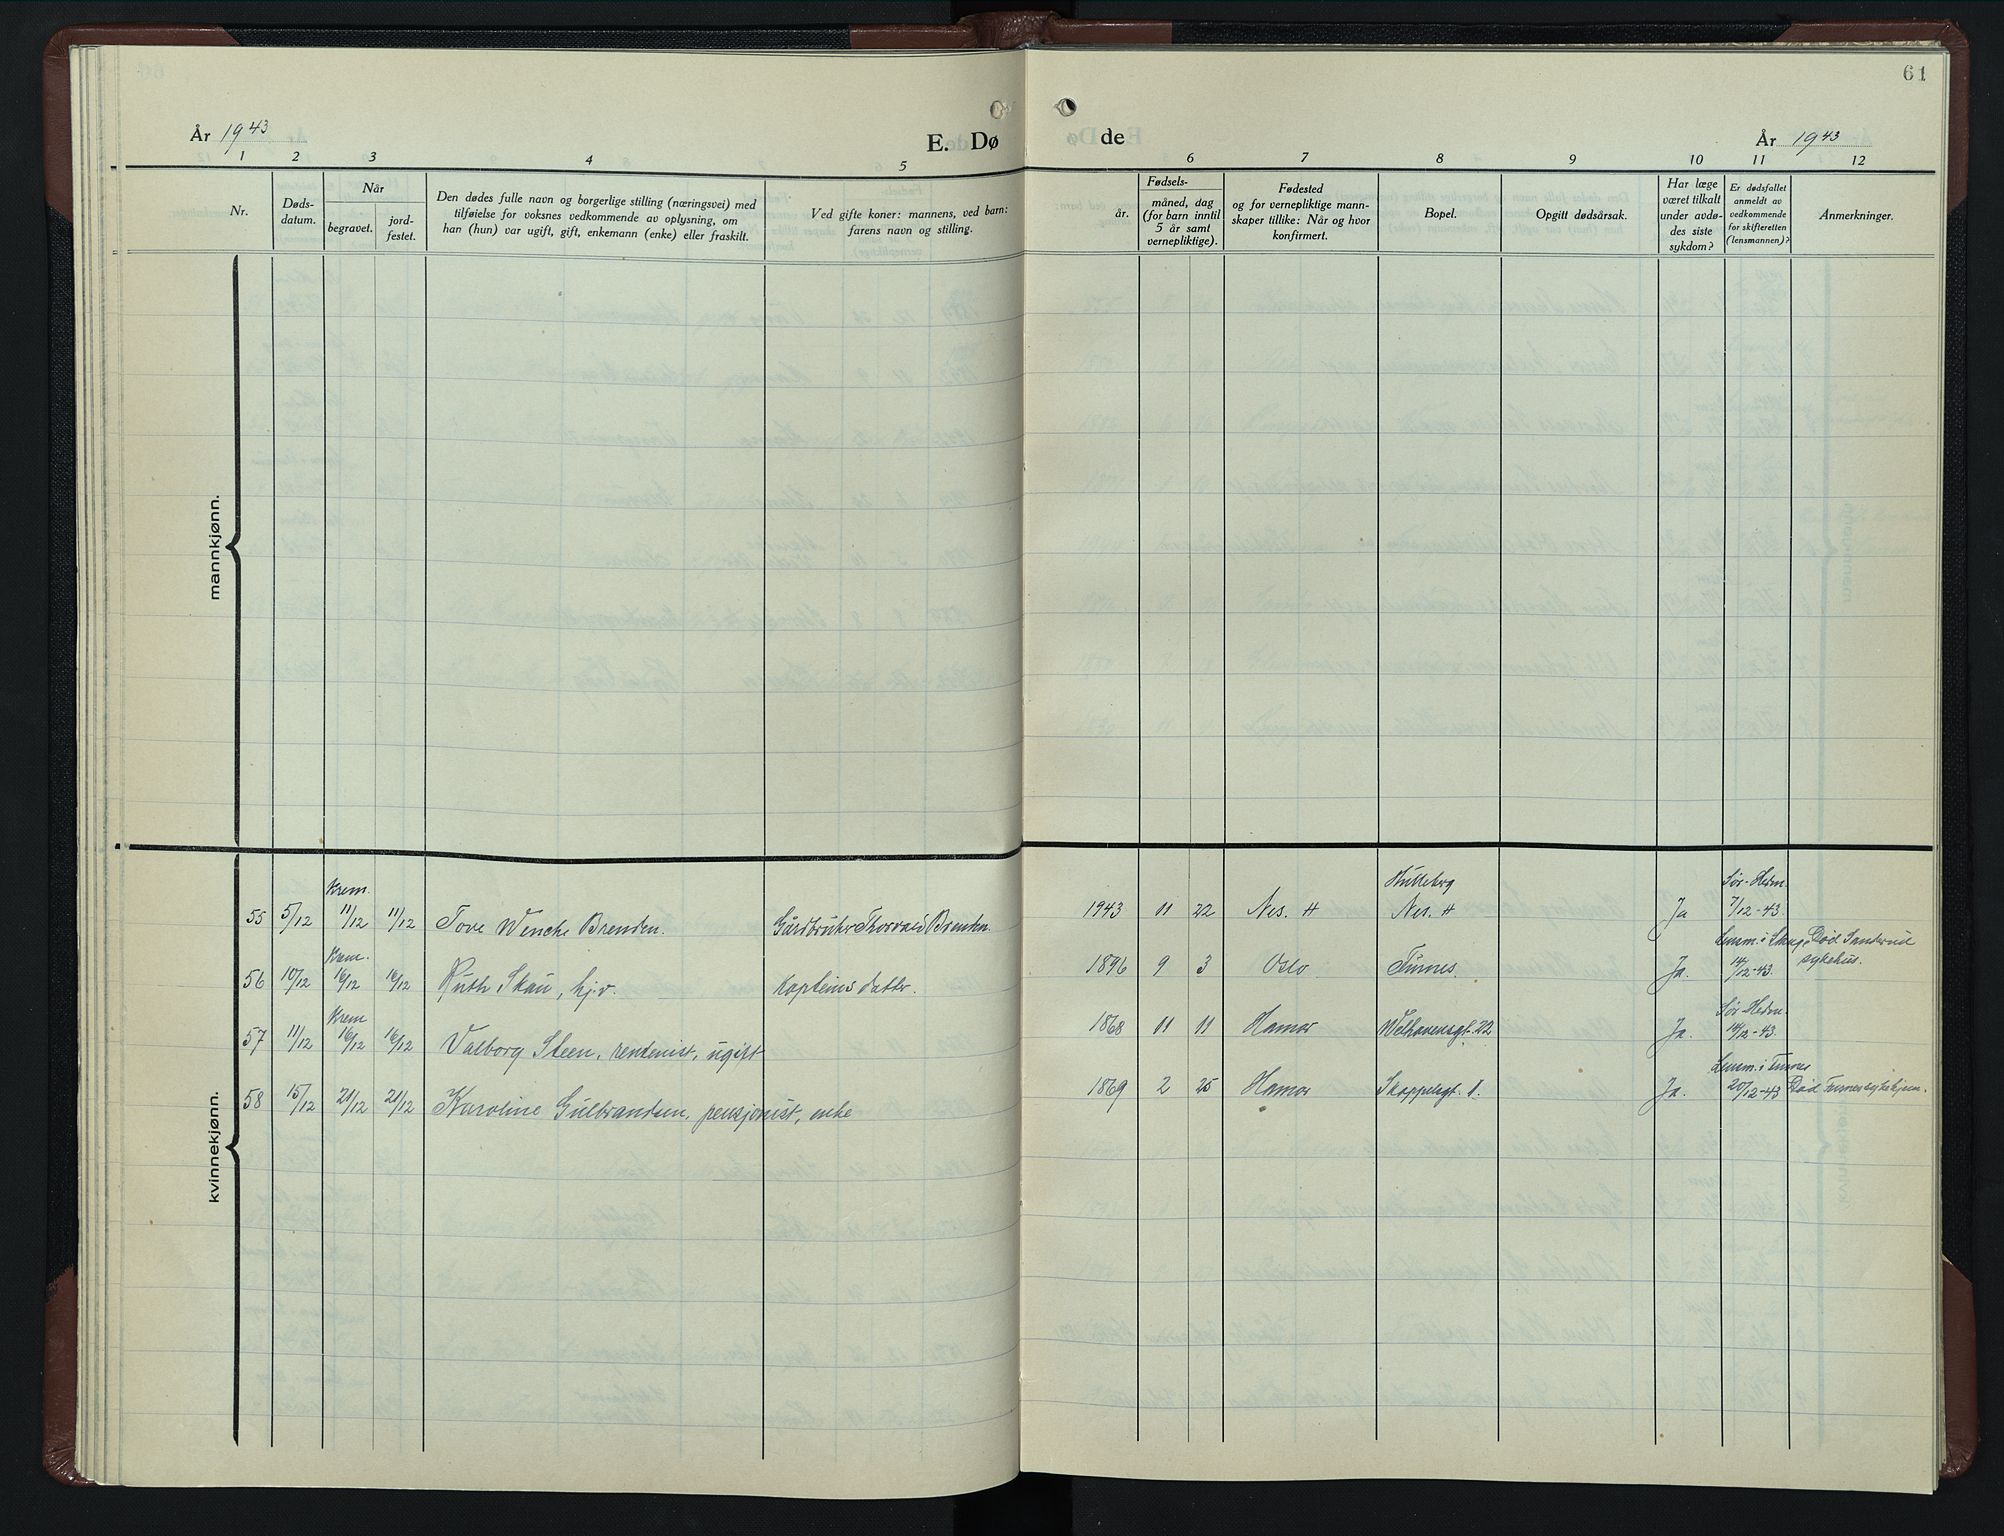 61
År 1943
E. Dø
de
År 1943
1 2 3 4 5
6 7 8 9 10 11 12
Nr.
Døds-
datum.
Når
begravet.
jord-
festet.
Den dødes fulle navn og borgerlige stilling (næringsvei) med
tilføielse for voksnes vedkommende av oplysning, om
han (hun) var ugift, gift, enkemann (enke) eller fraskilt.
Ved gifte koner: mannens, ved barn:
farens navn og stilling.
Fødsels-
år.
måned, dag
(for barn inntil
5 år samt
vernepliktige).
Fødested
og for vernepliktige mann-
skaper tillike: Når og hvor
konfirmert.
Bopel.
Opgitt dødsårsak.
Har læge
været tilkalt
under avdø-
des siste
sykdom?
Er dødsfallet
anmeldt av
vedkommende
for skifteretten
(lensmannen)?
Anmerkninger.
mannkjønn.
kvinnekjønn.
Krem. Hulleberg Sør-Hedm.
55 5/12 11/12 11/12 Tove Wenche Brenden. Gårdbruker Thorvald Brenden. 1943 11 22 Nes. H Nes. H Ja 7/12-43.
Krem. Lensm. i Død Sanderud
56 10/12 16/12 16/12 Ruth Skau, hj.v. Kapteins datter. 1896 9 3 Oslo Furnes. Ja. 14/12-43. sykehus.
Krem Sør-Hedm.
57 11/12 16/12 16/12 Valborg Steen, rentenist, ugift 1868 11 11 Hamar Welhavensgt. 22 Ja. 14/12-43.
Lensm. i Furnes
58 15/12 21/12 21/12 Karoline Gulbrandsen, pensjonist, enke 1869 2 25 Hamar Skappelsgt. 1. Ja. 20/12-43 Død Furnes sykehjem.